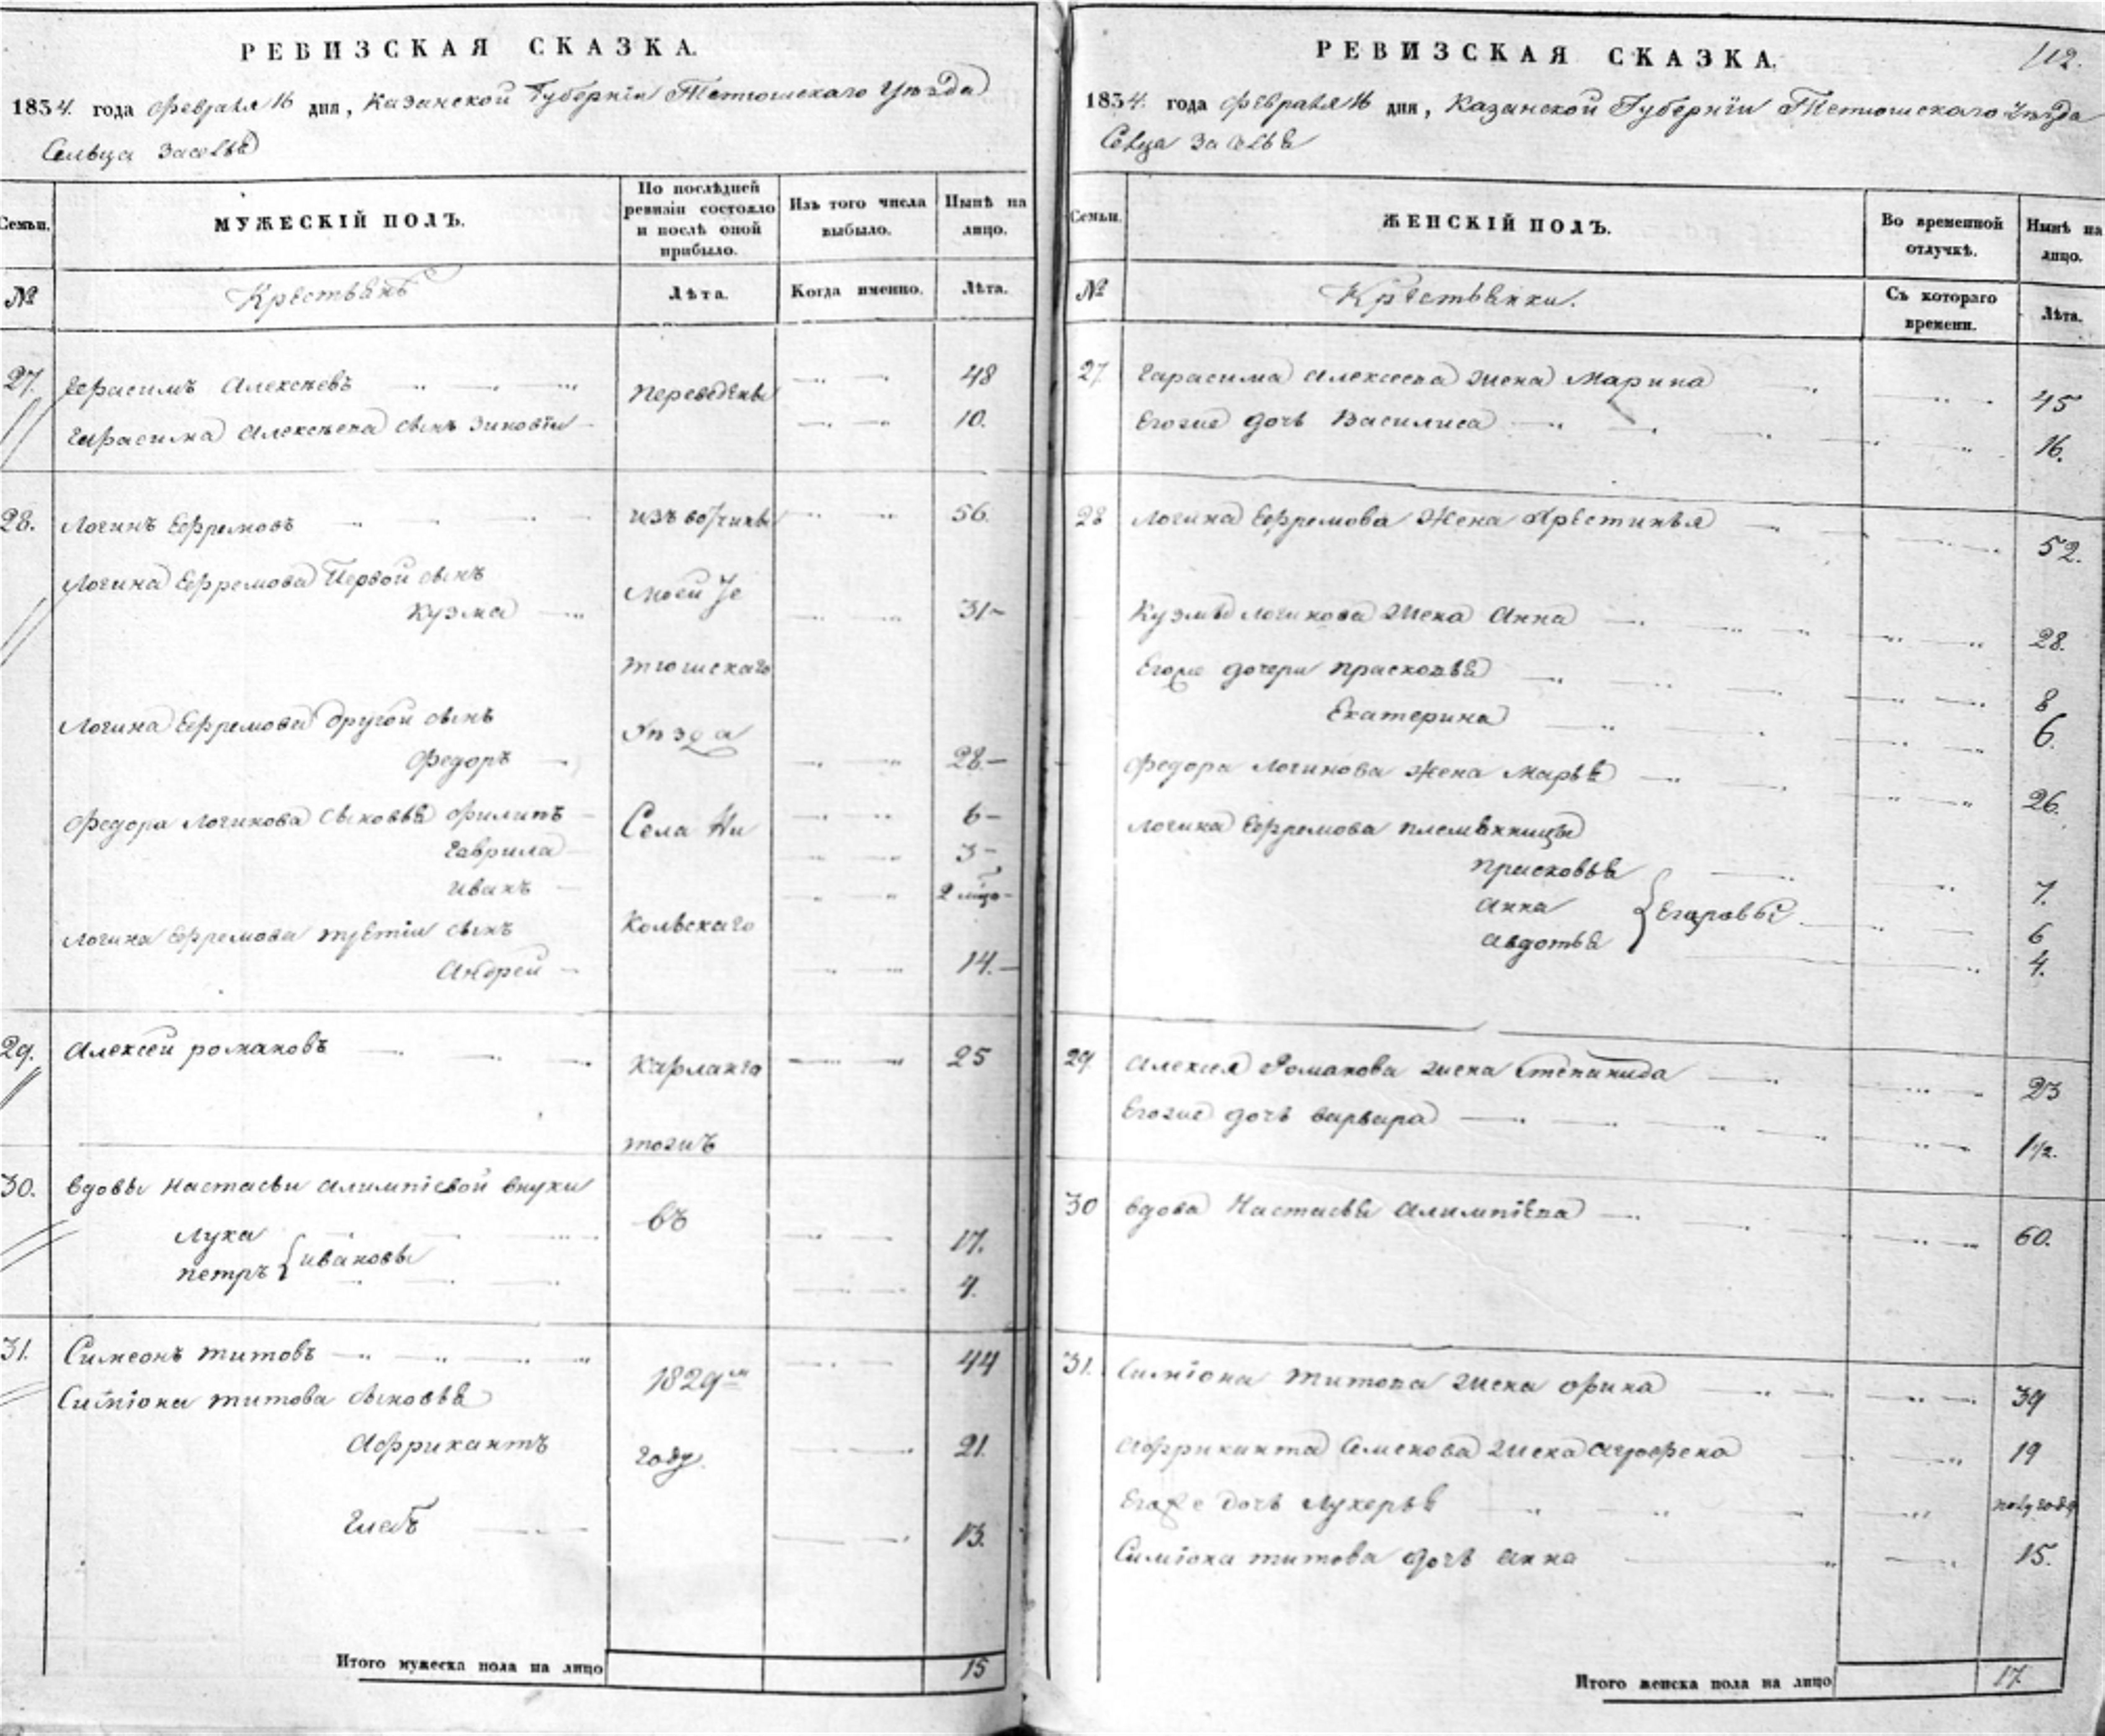 РЕВИЗСКАЯ СКАЗКА.
1834. года февраля 16 дня, Казанской Губернiи Тетюшскаго Уѣзда
Сельца Заселья
Семьи.
МУЖЕСКIЙ ПОЛЪ.
По послѣдней ревизiи состояло и послѣ оной прибыло.
Изъ того числа выбыло.
Нынѣ на лицо.
№
Крестьянъ
Лѣта.
Когда именно.
Лѣта.
27. Герасимъ Алексѣевъ 48
Герасима Алексѣева сынъ Зиновiи 10.
28. Логинъ Ефремовъ 56.
Логина Ефремова Первой сынъ
Кузма 31
Логина Ефремова другой сынъ
Федоръ 28
Федора Логинова сыновья Филипъ 6
Гаврила 3
Иванъ
Логина Ефремова третiи сынъ
Андрей 14.
29. Алексей романовъ 25
30. вдовы Настасьи Алимпiевой внуки
Лука 17.
петръ } ивановы
31. Симеонъ титовъ 44
Симiона титова сыновья
Аффрикантъ 21.
Глебъ 13.
Переведены
изъ вотчины
моей Те
тюшскаго
Уѣзда
Села Ни
Кольскаго
Карланга
тожъ
въ
1829м
году.
Итого мужеска пола на лицо 15
РЕВИЗСКАЯ СКАЗКА.
112.
1834. года февраля 16 дня, Казанской Губернiи Тетюшскаго Уѣзда
Сельца Заселья
Семьи.
ЖЕНСКIЙ ПОЛЪ.
Во временной отлучкѣ.
Нынѣ на лицо.
№
Крестьянки.
Съ котораго времени.
Лѣта.
27 Гарасима Алексеева жена Марина 45
Егоже дочь Василиса 16.
28 Логина Ефремова жена Хрестинья 52.
Кузмы Логинова жена Анна 28.
Егоже дочери прасковья 8
Екатерина 6.
Федора Логинова жена Марья 26.
Логина Ефремова племянницы
прасковья 7.
Анна } Егоровы 6
Авдотья 4.
29 Алексея Романова жена Степанида 23
Егоже дочь варвара 1 1/2.
30 вдова Настасья Алимпiева 60.
31. Симiона титова жена Орина 39
Аффриканта Семенова жена Агрофена 19
Егоже дочь Лукерья полугода
Симiона титова дочь Анна 15.
Итого женска пола на лицо 17.